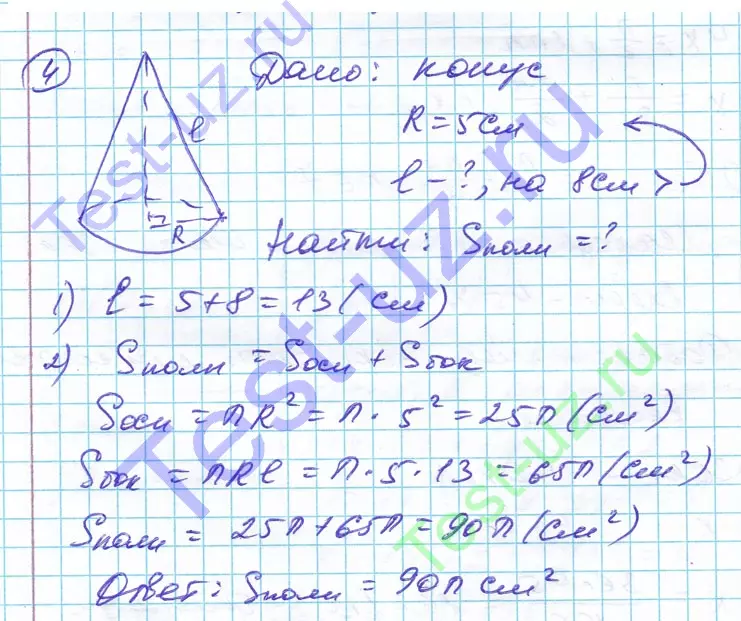 4
Дано: конус
R = 5 см
l - ?, на 8 см >
l
R
Найти: Sполн = ?
1) l = 5 + 8 = 13 (см)
2) Sполн = Sосн + Sбок
Sосн = πR² = π · 5² = 25π (см²)
Sбок = πRl = π · 5 · 13 = 65π (см²)
Sполн = 25π + 65π = 90π (см²)
Ответ: Sполн = 90π см²
Test-uz.ru
Test-uz.ru
Test-uz.ru